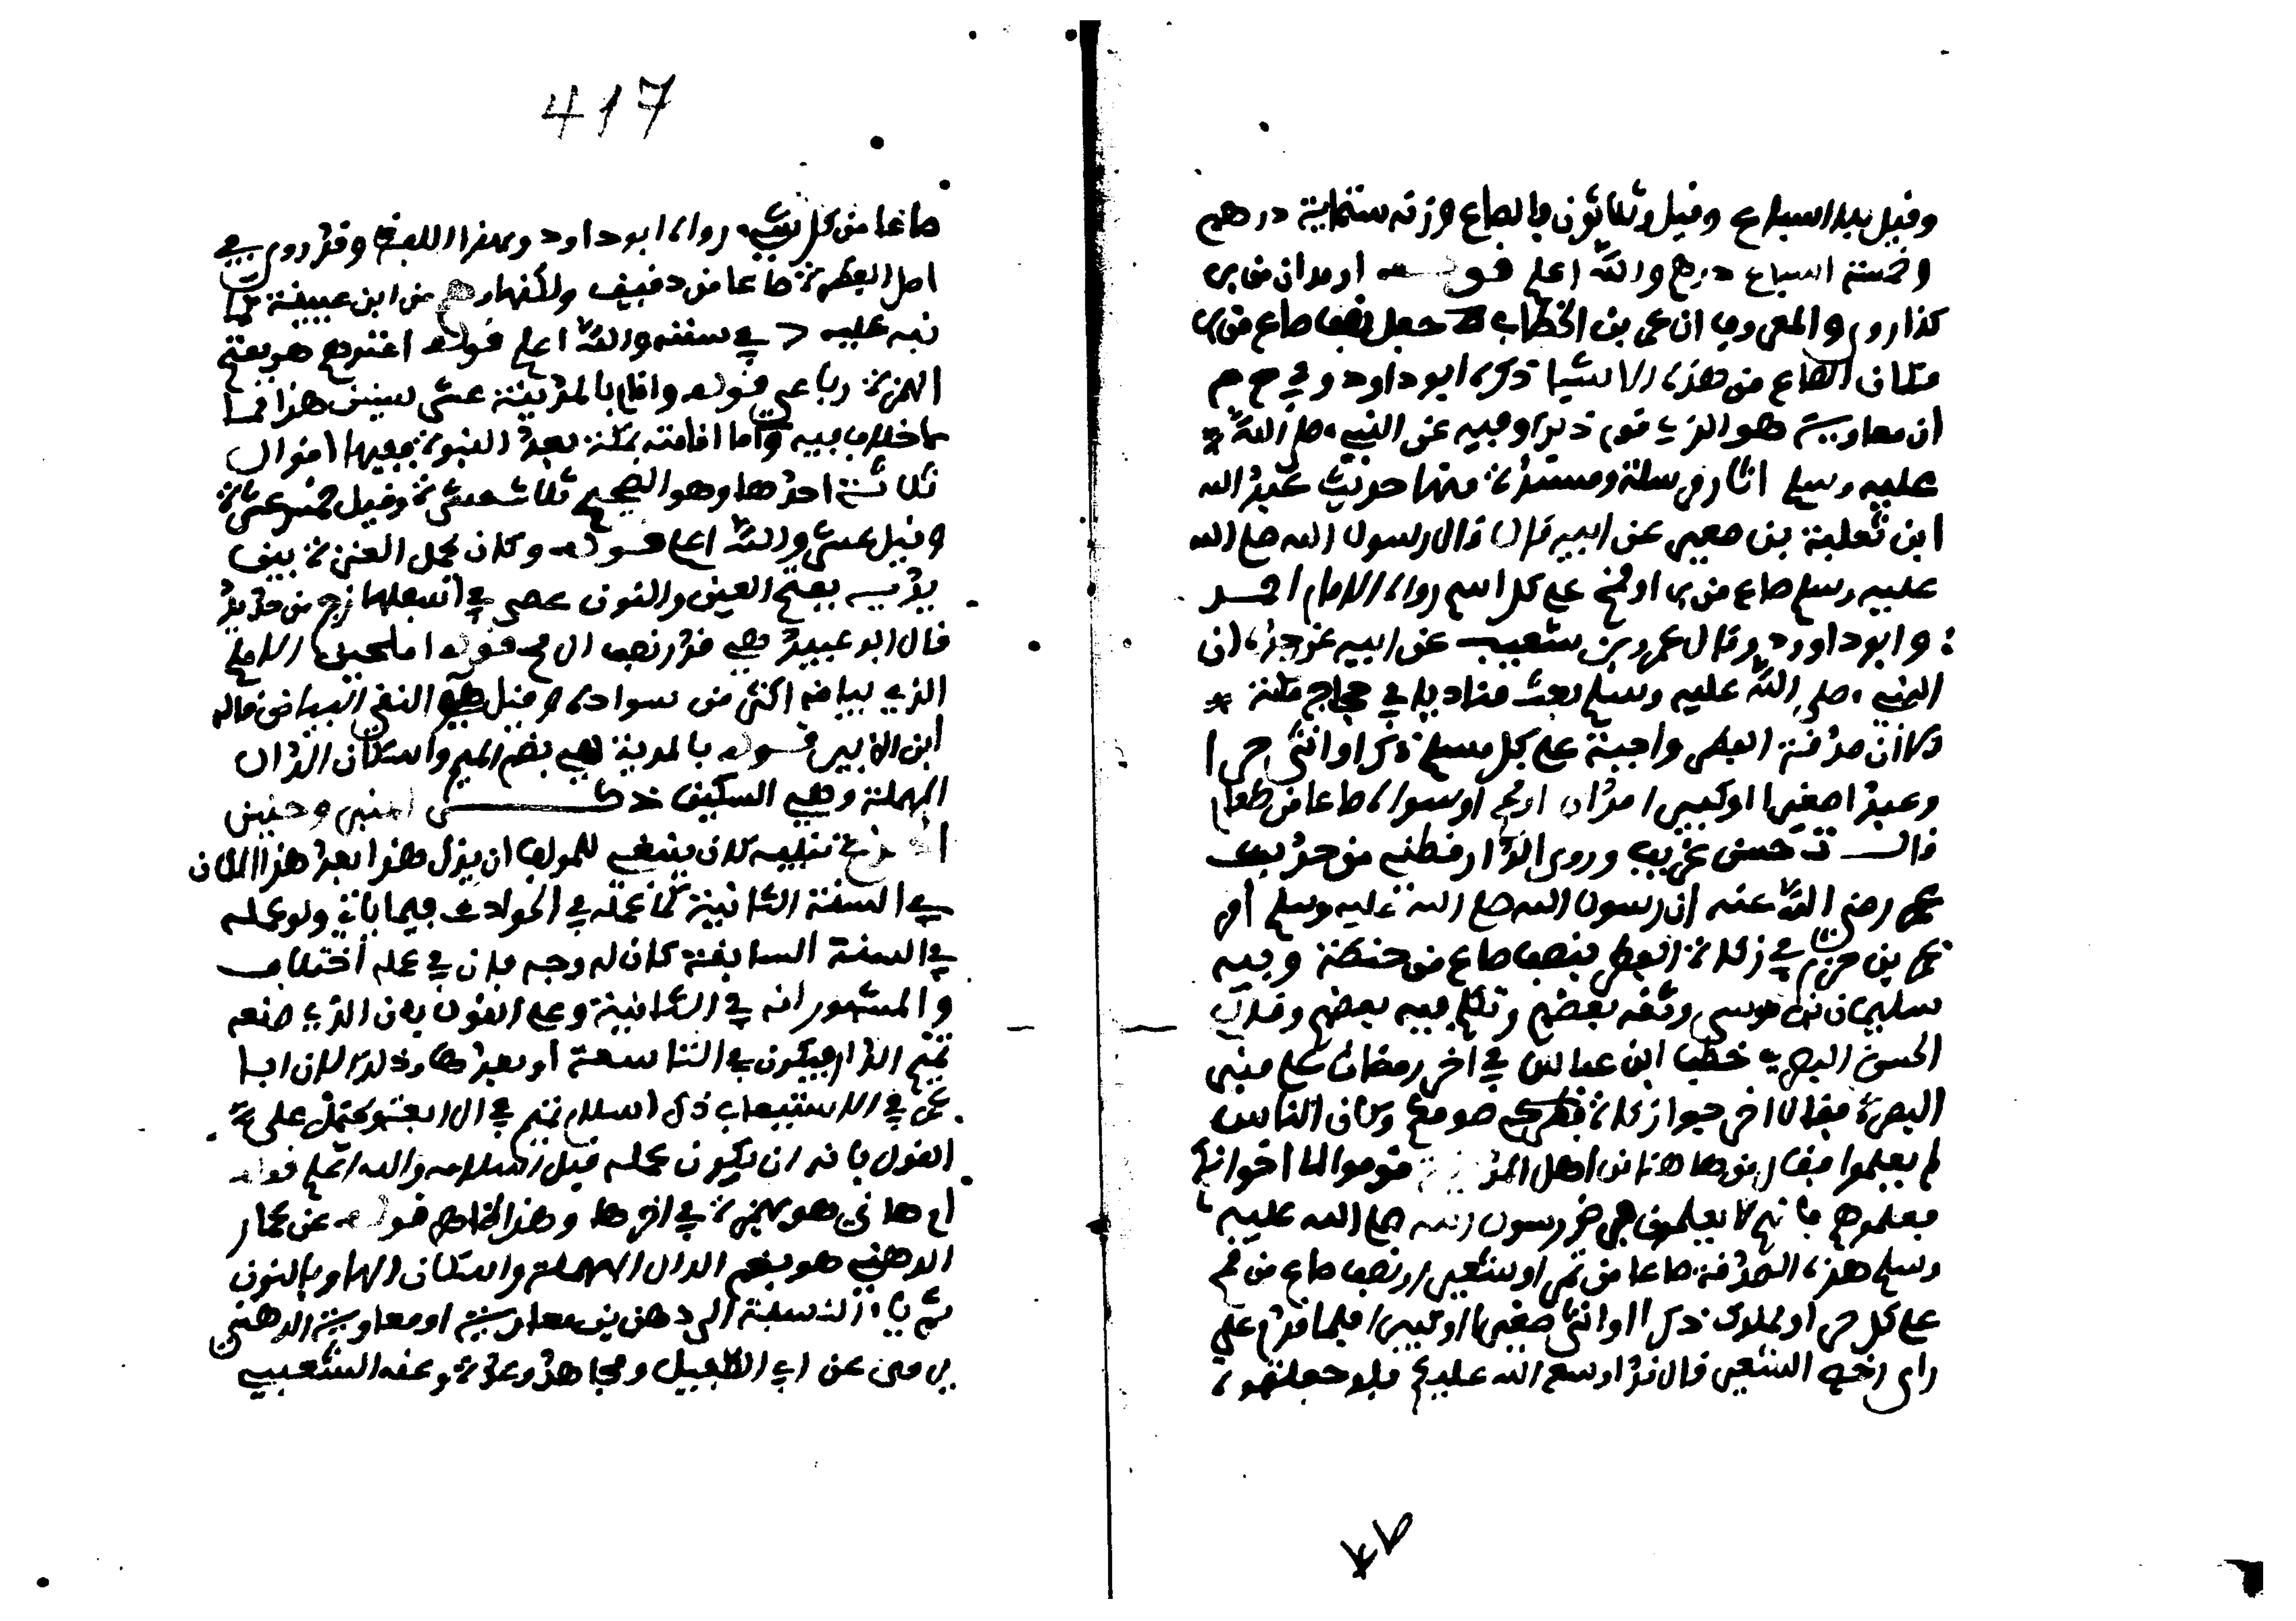 وقيل بلا اسباع وقيل وثلاثون فالصاع وزنه ستماية درهم
وخمسة اسباع درهم والله اعلم قوله او مدان من بر
كذا روي والمعروف ان عمر بن الخطاب جعل نصف صاع من بر
مكان الصاع من هذه الاشيا ذكره ابو داود وفي خ م
ان معاوية هو الذي قوم ذلك وفيه عن النبي صلى الله
عليه وسلم اثار مرسلة ومسندة منها حديث عبد الله
ابن ثعلبة بن صعير عن ابيه قال قال رسول الله صلى الله
عليه وسلم صاع من بر او قمح على كل اسم رواه الامام احمد
وابو داود وقال عمرو بن شعيب عن ابيه عن جده ان
النبي صلى الله عليه وسلم بعث مناديا في فجاج مكة
الا ان صدقة الفطر واجبة على كل مسلم ذكر او انثى حر او
وعبد صغير او كبير مدان او قمح او سواه صاعا من طعام
قال ت حسن غريب وروى الدارقطني من حديث
عمر رضي الله عنه ان رسول الله صلى الله عليه وسلم امر
عمرو بن حزم في زكاة الفطر بنصف صاع من حنطة وفيه
سليمان بن موسى وثقه بعضهم وتكلم فيه بعضهم وقال
الحسن البصري خطب ابن عباس في اخر رمضان على منبر
البصرة فقال اخرجوا زكاة صومكم وكان الناس
لم يعلموا فقال من ها هنا من اهل المدينة قوموا الى اخوانكم
فعلموهم فانهم لا يعلمون فرض رسول الله صلى الله عليه
وسلم هذه الصدقة صاعا من تمر او شعير او نصف صاع من قمح
على كل حر او مملوك ذكر او انثى صغير او كبير فلما قدم علي
راى رخص الشعير قال قد اوسع الله عليكم فلو جعلتموه
417
صاعا من كل شيء رواه ابو داود وبهذا اللفظ وقد روي في
اصل الفطرة صاعا من دقيق ولكنها وهم من ابن عيينة كما
نبه عليه د في سننه والله اعلم قوله اغتروهم هو بفتح
الهمزة رباعي قوله واقام بالمدينة عشر سنين هذا مما
لا خلاف فيه واما اقامته بمكة بعد النبوة ففيها اقوال
ثلاثة احدها وهو الصحيح ثلاث عشرة وقيل خمس عشرة
وقيل عشر والله اعلم قوله وكان يحمل العنزة بين
يديه بفتح العين والنون عصى في اسفلها زج من حديد
قال ابو عبيد هي قدر نصف الرمح قوله املحين الاملح
الذي بياضه اكثر من سواده وقيل هو النقي البياض قاله
ابن الاثير قوله بالمدية هي بضم الميم واسكان الدال
المهملة وهي السكين ذكر المنبر وحنين
الجذع تنبيه كان ينبغي للمولف ان يذكر هذا بعد هذا المكان
في السنة الثانية كما عمله في الحوادث فيما ياتي ولو عمله
في السنة السابعة كان له وجه فان في عمله اختلاف
والمشهور انه في الثامنة وعلى القول بان الذي صنعه
تميم الداري فيكون في التاسعة او بعدها وذلك لان ابا
عمر في الاستيعاب ذكر اسلام تميم في الرابعة ويحتمل على
القول بانه ان يكون عمله قبل اسلامه والله اعلم قوله
ام هاني هو بهمزة في اخرها وهذا ظاهر قوله عن عمار
الدهني هو بضم الدال المهملة واسكان الها وبالنون
ثم ياء النسبة الى دهن بن معاوية او معاوية الدهني
يروي عن ابي الطفيل ومجاهد وعدة وعنه الشعبي